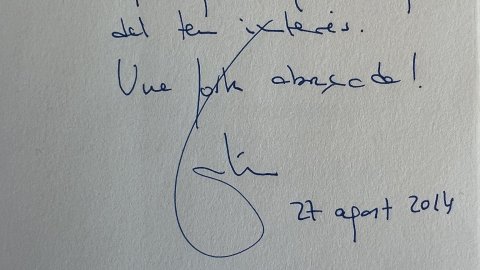 del teu interès.
Una forta abraçada!
27 agost 2014